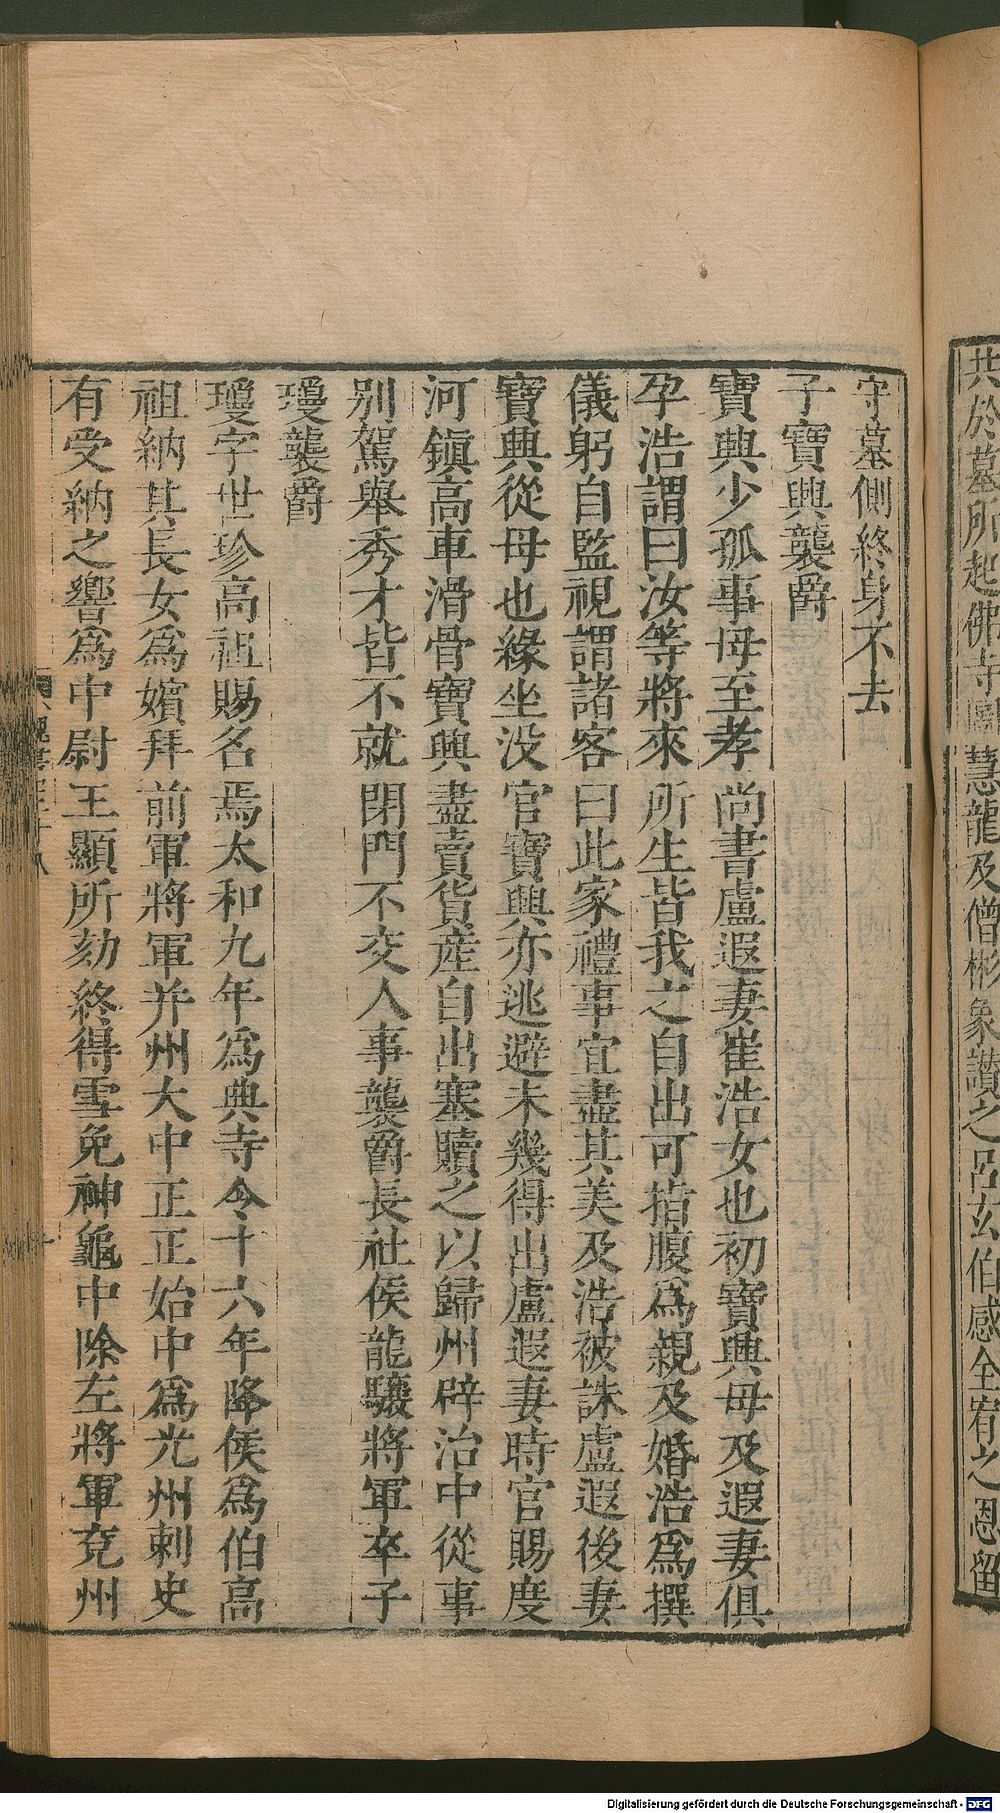 共於墓所起佛寺圖慧龍及僧彬象讚之呂玄伯感全宥之恩留
守墓側終身不去
子寶興襲爵
寶興少孤事母至孝尚書盧遐妻崔浩女也初寶興母及遐妻俱
孕浩謂曰汝等將來所生皆我之自出可指腹爲親及婚浩爲撰
儀躬自監視謂諸客曰此家禮事宜盡其美及浩被誅盧遐後妻
寶興從母也緣坐没官寶興亦逃避未幾得出盧遐妻時官賜度
河鎮高車滑骨寶興盡賣貨産自出塞贖之以歸州辟治中從事
别駕舉秀才皆不就閉門不交人事襲爵長社侯龍驤將軍卒子
瓊襲爵
瓊字世珍高祖賜名焉太和九年爲典寺令十六年降侯爲伯高
祖納其長女爲嬪拜前軍將軍并州大中正正始中爲光州刺史
有受納之響爲中尉王顯所劾終得雪免神龜中除左將軍兗州
Digitalisierung gefördert durch die Deutsche Forschungsgemeinschaft - DFG